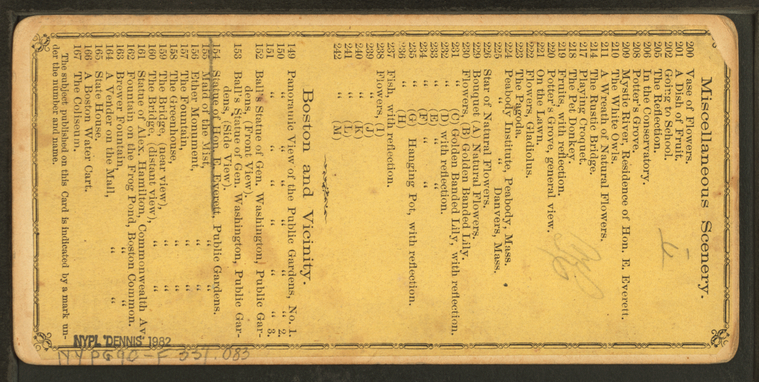 Miscellaneous Scenery.
200 Vase of Flowers.
201 A Dish of Fruit.
207 Going to School.
205 The Reflection.
206 In the Conservatory.
208 Potter's Grove.
209 Mystic River, Residence of Hon. E. Everett.
210 The White Owls.
211 A Wreath of Natural Flowers.
214 The Rustic Bridge.
217 Playing Croquet.
218 The Pet Donkey.
219 Fruit with reflection.
220 Potter's Grove, general view,
221 On the Lawn.
222 Flowers, Gladiolus.
223 A Pagoda,
224 Peabody Institute, Peabody, Mass.
225 " " Danvers, Mass.
226 Star of Natural Flowers.
228 Bouquet of Natural Flowers.
230 Flowers, (B) Golden Banded Lily.
231 " (C) Golden Banded Lily, with reflection.
232 " (D) with reflection.
233 " (E) " "
234 " (F) " "
235 " (G) Hanging Pot, with reflection.
236 " (H)
237 Fish, with reflection.
238 Flowers, (I)
239 " (J)
240 " (K)
241 " (L)
242 " (M
Boston and Vicinity.
149 Panoramic View of the Public Gardens, No. 1.
150 " " " " " 2.
151 " " " " " 3.
152 Ball's Statue of Gen. Washington, Public Gar-
dens, (Front View).
153 Ball's Statue of Gen. Washington, Public Gar-
dens, (Side View).
154 Statue of Hon. E. Everett, Public Gardens.
155 Maid of the Mist, " "
156 Ether Monument, " "
157 The Fountain, " "
158 The Greenhouse, " "
159 The Bridge, (near view), " "
160 The Bridge, (distant view), " "
161 Statue of Alex. Hamilton, Commonwealth Av
162 Fountain on the Frog Pond, Boston Common.
163 Brewer Fountain, " "
164 A Vender on the Mall, " "
165 State House,
166 A Boston Water Cart.
167 The Coliseum.
The subject published on this Card is indicated by a mark un-
der the number and name.
NYPL 'DENNIS' 1982
NYPG90-F331.083